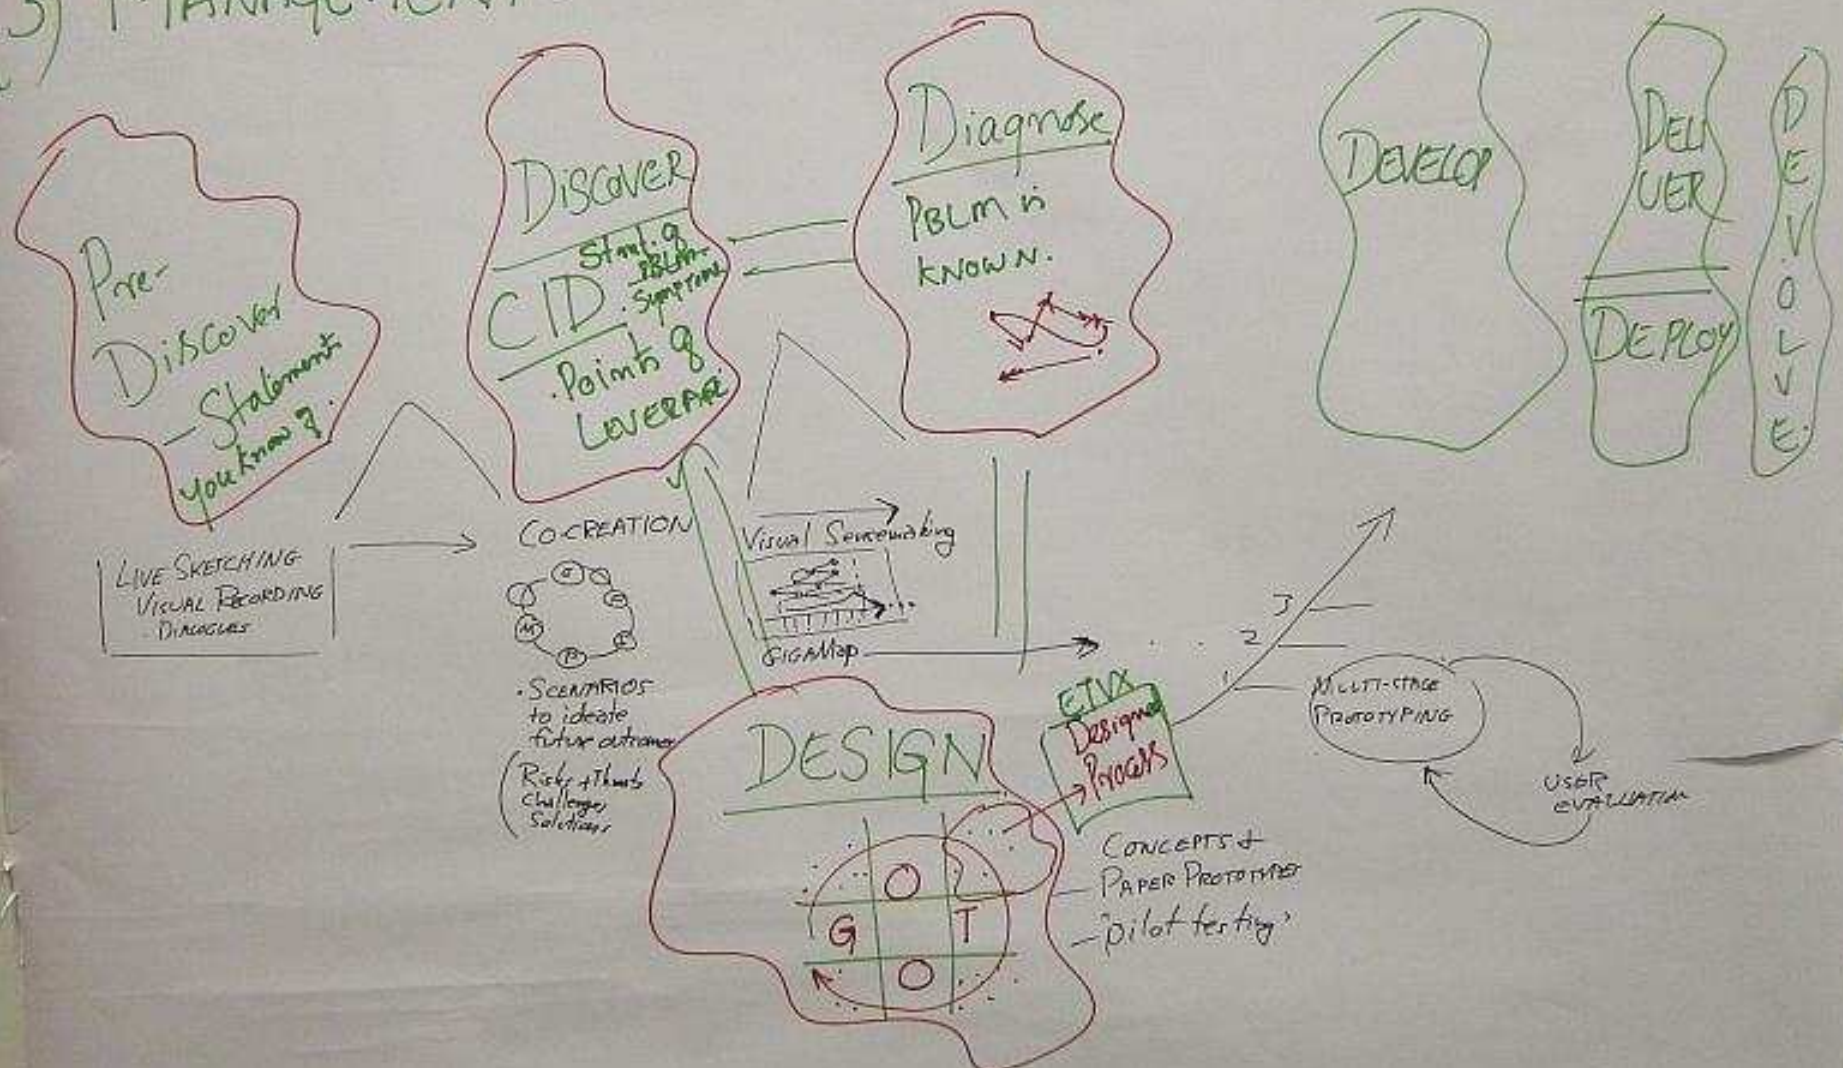 3) MANAGEMENT
Pre-
DISCOVER
- Statements
you know?
DISCOVER
CID
PBLM-
Symptoms
. Points of
LOVERAGE
Diagnose
PBLM is
KNOWN.
DEVELOP
DELI
VER
DEPLOY
DEVOLVE.
LIVE SKETCHING
VISUAL RECORDING
DIALOGUES
CO-CREATION
M
P
. SCENARIOS
to ideate
future outcomes
Risks + Threats
Challenges
Solutions
Visual Sensemaking
GIGAMap
DESIGN
O
G T
O
ETVX
Designed
Process
CONCEPTS &
PAPER PROTOTYPES
- "pilot testing"
1
2
3
MULTI-STAGE
PROTOTYPING
USER
EVALUATION